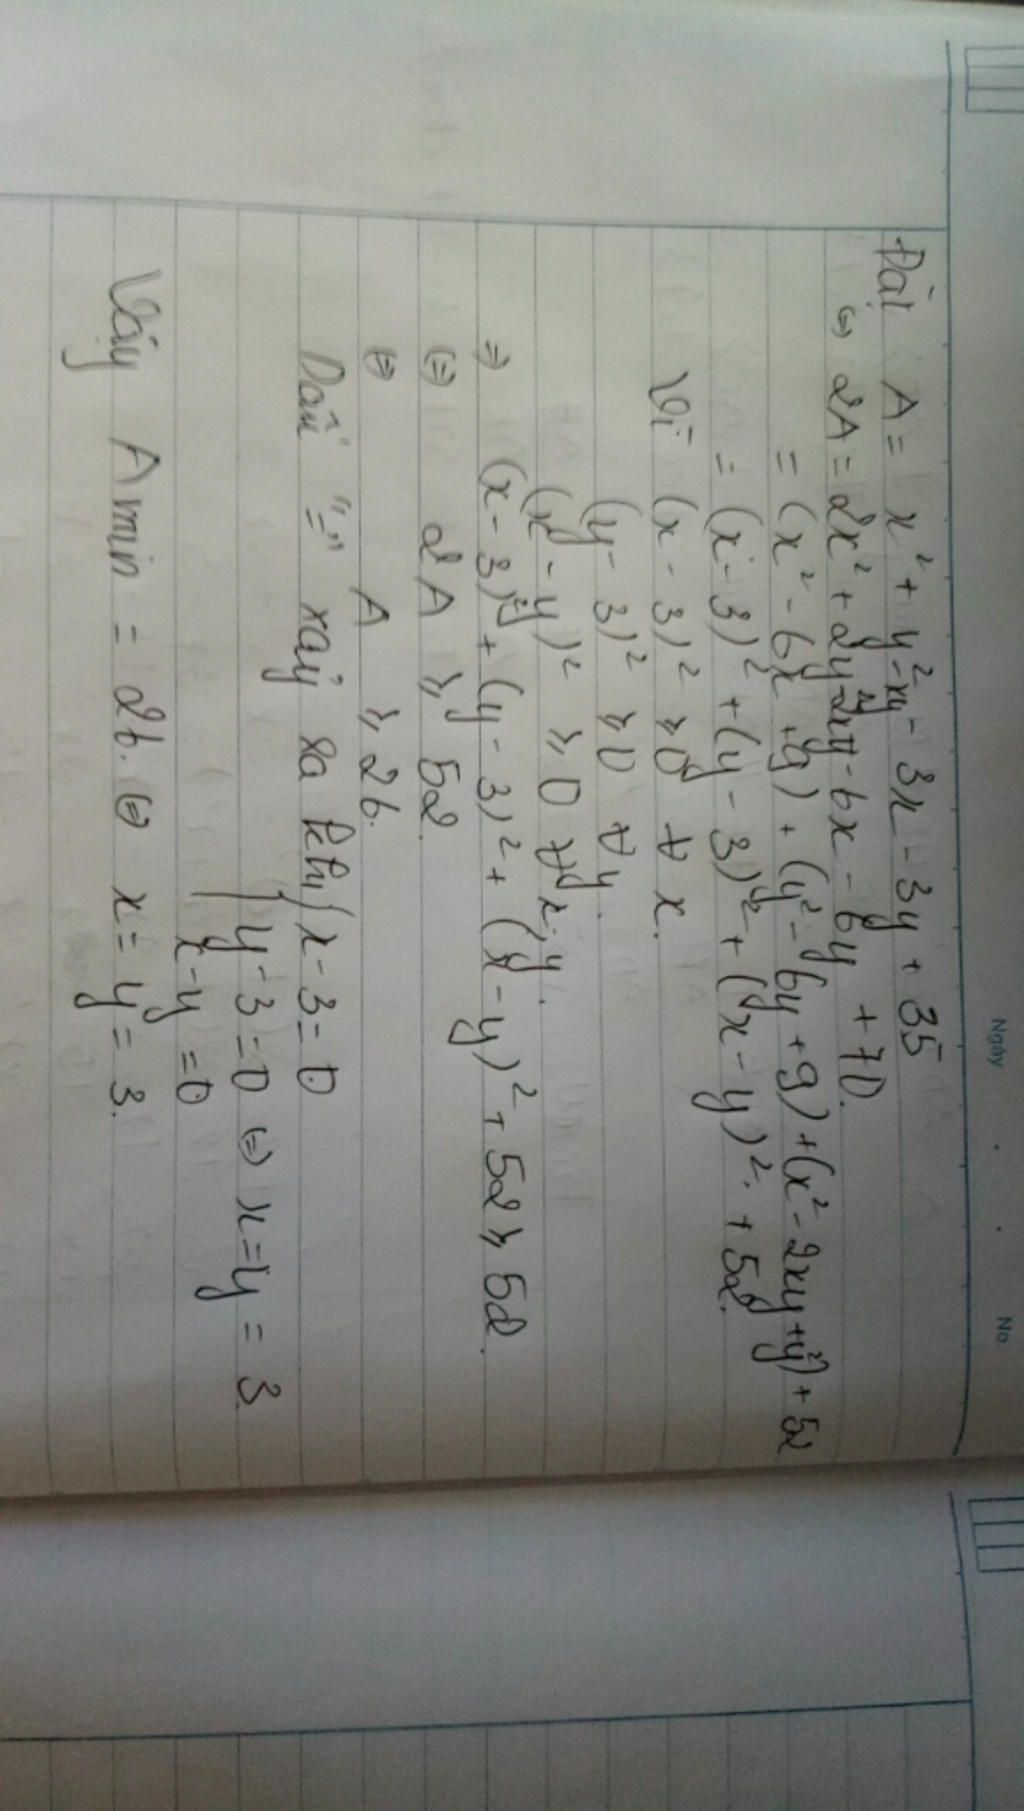 Ngày . . No.
Đặt A = x² + y² - xy - 3x - 3y + 35
⇔ 2A = 2x² + 2y² - 2xy - 6x - 6y + 70.
= (x² - 6x + 9) + (y² - 6y + 9) + (x² - 2xy + y²) + 52
= (x - 3)² + (y - 3)² + (x - y)² + 52.
Vì (x - 3)² ≥ 0 ∀ x.
(y - 3)² ≥ 0 ∀ y.
(x - y)² ≥ 0 ∀ x, y.
⇒ (x - 3)² + (y - 3)² + (x - y)² + 52 ≥ 52.
⇔ 2A ≥ 52
⇔ A ≥ 26.
Dấu "=" xảy ra khi { x - 3 = 0
y - 3 = 0 ⇔ x = y = 3
x - y = 0
Vậy A min = 26. ⇔ x = y = 3.